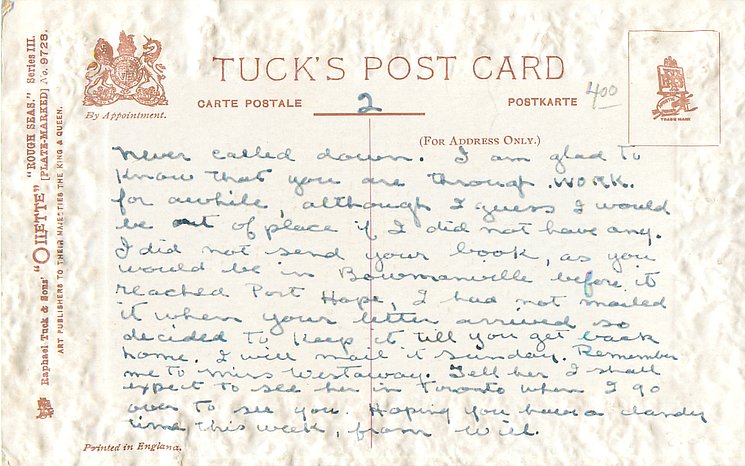 TUCK'S POST CARD
CARTE POSTALE
2
POSTKARTE
400
By Appointment.
(FOR ADDRESS ONLY.)
TRADE MARK
Raphael Tuck & Sons' "OILETTE" "ROUGH SEAS." Series III.
[PLATE-MARKED] No. 9728.
ART PUBLISHERS TO THEIR MAJESTIES THE KING & QUEEN.
never called down. I am glad to
know that you are through WORK.
for awhile, although I guess I would
be out of place if I did not have any.
I did not send your book, as you
would be in Bowmanville before it
reached Port Hope, I had not mailed
it when your letter arrived so
decided to keep it till you get back
home. I will mail it Sunday. Remember
me to Miss Westaway. Tell her I shall
expect to see her in Toronto when I go
over to see you. Hoping you have a dandy
time this week, from Will.
Printed in England.